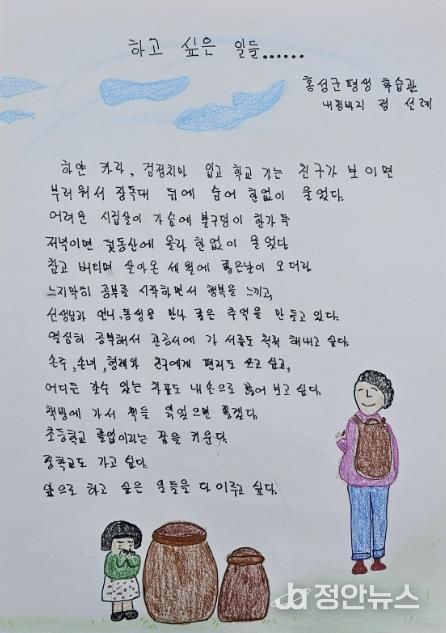 하고 싶은 일들......
홍성군 평생 학습관
내현바지 정 선례
하얀 카라, 검정치마 입고 학교 가는 친구가 보이면
부러워서 장독대 뒤에 숨어 한없이 울었다.
어려운 시집살이 가슴에 불구덩이 한가득
저녁이면 뒷동산에 올라 한없이 울었다
참고 버티며 살아온 세월에 좋은날이 오더라
느지막히 공부를 시작하면서 행복을 느끼고,
선생님과 언니, 동생을 만나 좋은 추억을 만들고 있다.
열심히 공부해서 관공서에 가 서류도 척척 해내고 싶다.
손주, 손녀, 형제와 친구에게 편지도 쓰고 싶고,
어디든 갈수 있는 차표도 내 손으로 끊어 보고 싶다.
책방에 가서 책을 읽었으면 좋겠다.
초등학교 졸업이라는 꿈을 키운다.
중학교도 가고 싶다.
앞으로 하고 싶은 일들을 다 이루고 싶다.
정안뉴스